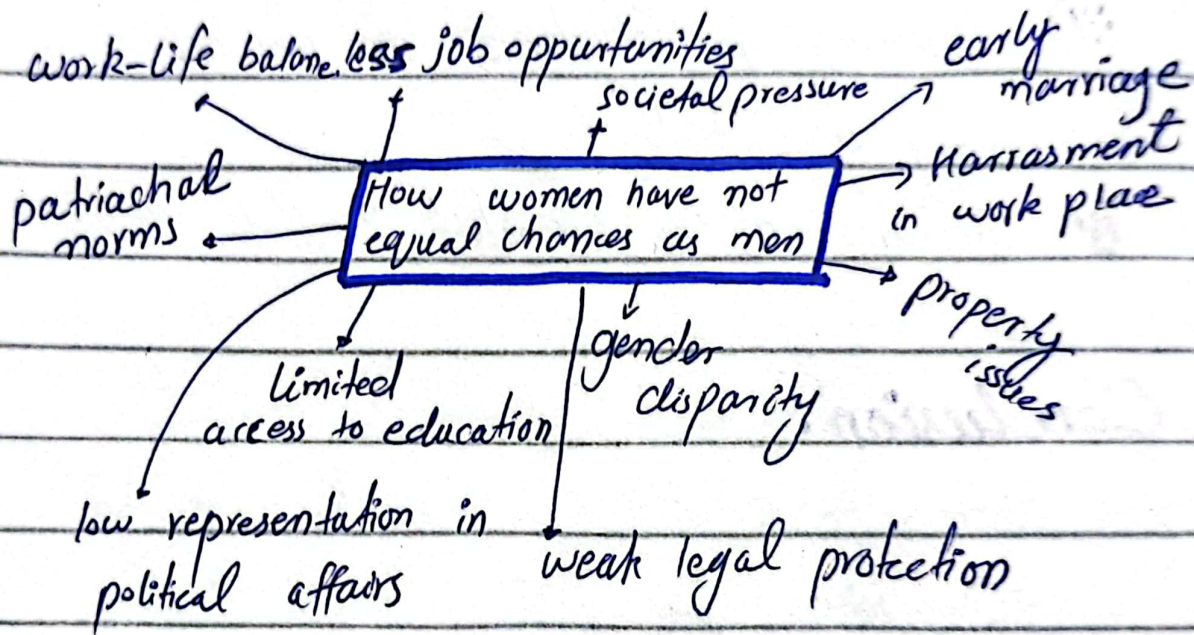 work-life balance
less job oppurtunities
societal pressure
early
marriage
Harrasment
in work place
patriachal
norms
How women have not
equal chances as men
property
issues
gender
disparity
limited
access to education
low representation in
political affairs
weak legal protection